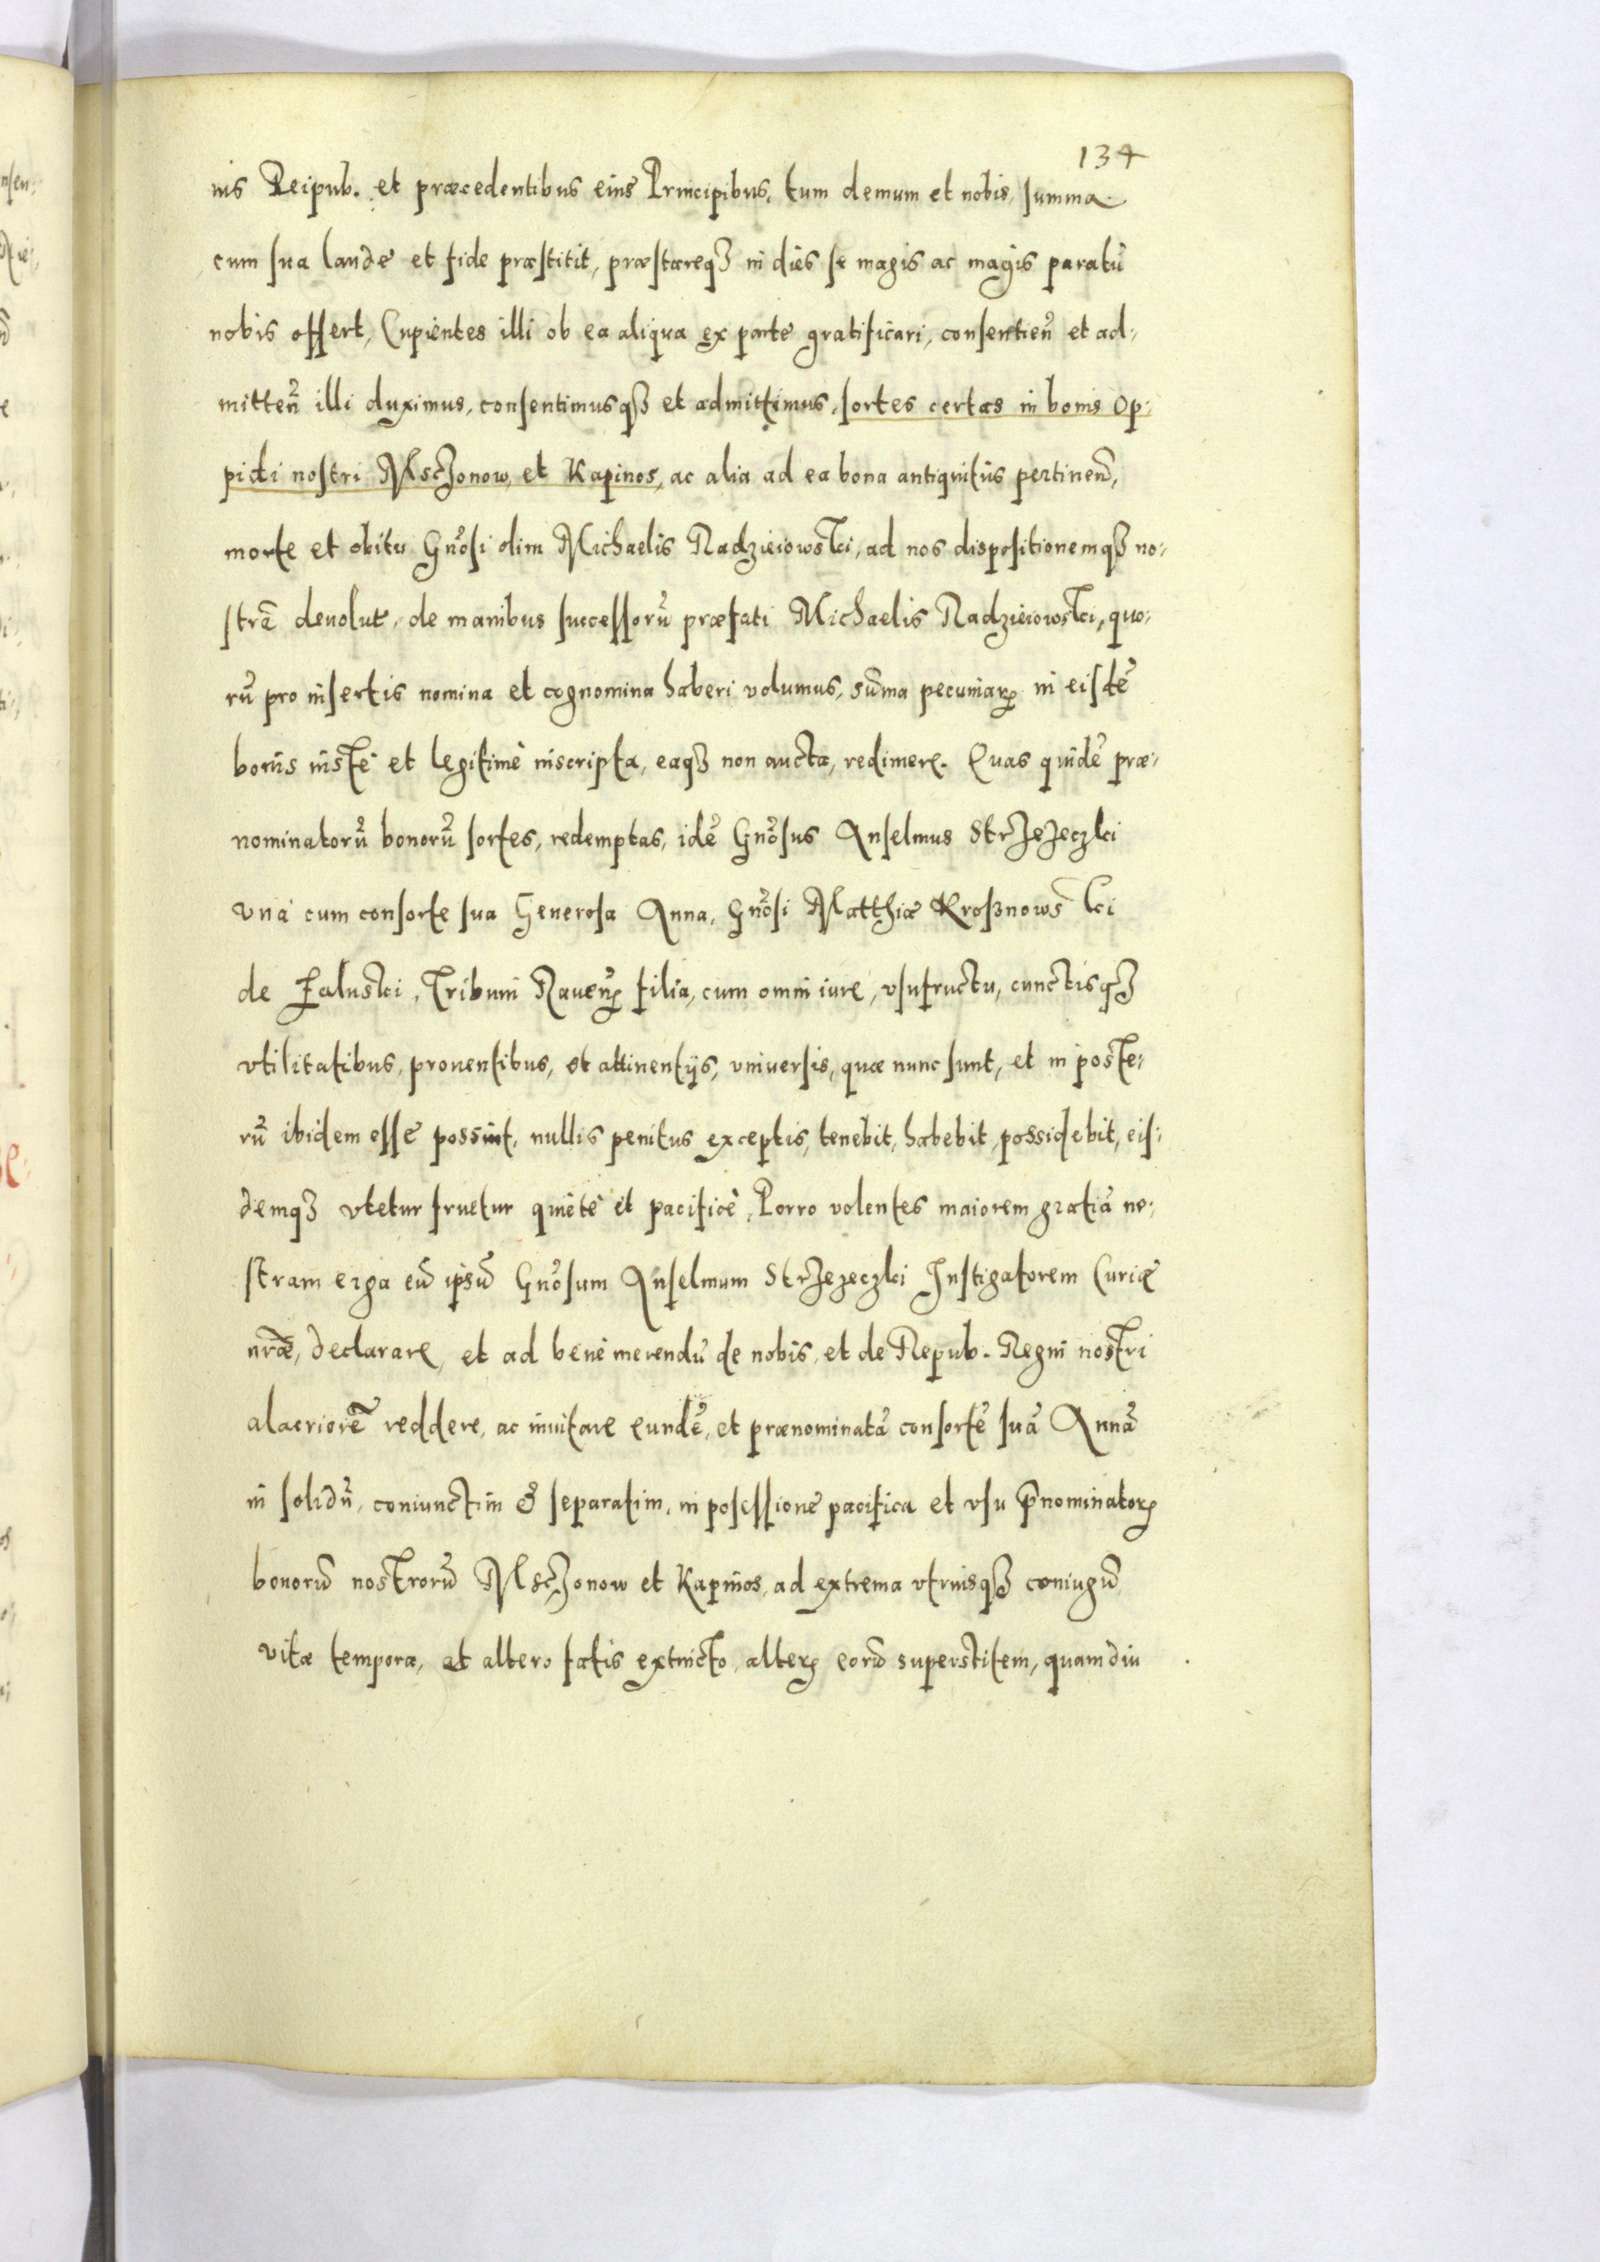 134
nis Reipub. et præcedentibus eius Principibus, tum demum et nobis, summa
cum sua laude et fide præstitit, præstareqꝫ in dies se magis ac magis paratū
nobis offert, Cupientes illi ob ea aliqua ex parte gratificari, consentien̄ et ad-
mitten̄ illi duximus, consentimusqꝫ et admittimus, sortes certas in bonis Op-
pidi nostri Msczonow, et Kapinos, ac alia ad ea bona antiquitùs pertinen̄,
morte et obitu Gn̄osi olim Michaelis Radzieiowski, ad nos dispositionemqꝫ no-
strā deuolut, de manibus successorū præfati Michaelis Radzieiowski, quo-
rū pro insertis nomina et cognomina haberi volumus, sūma pecuniarꝝ in eisdē
bonis iustè et legitimè inscripta, eaqꝫ non aucta, redimere. Quas quidē præ-
nominatorū bonorū sortes, redemptas, idē Gn̄osus Anselmus Strzezeczki
vnà cum consorte sua Generosa Anna, Gn̄osi Matthiæ Kroßnowski
de Zaluski, Tribuni Rauen̄ filia, cum omni iure, vsufructu, cunctisqꝫ
vtilitatibus, prouentibus, et attinentijs, vniuersis, quæ nunc sunt, et in poste-
rū ibidem esse possint, nullis penitus exceptis, tenebit, habebit, possidebit, eis-
demqꝫ vtetur fruetur quietè et pacificè, Porro volentes maiorem gratiā no-
stram erga eū ipsū Gn̄osum Anselmum Strzezeczki Instigatorem Curiæ
nr̄æ, declarare, et ad bene merendū de nobis, et de Repub. Regni nostri
alacriorē reddere, ac inuitare eundē, et prænominatā consortē suā Annā
in solidū, coniunctim & separatim, in possessione pacifica et vsu p̄nominatorꝝ
bonorū nostrorū Msczonow et Kapinos, ad extrema vtriusqꝫ coniugū
vitæ tempora, at altero fatis extincto, alterꝝ eorū superstitem, quamdiu